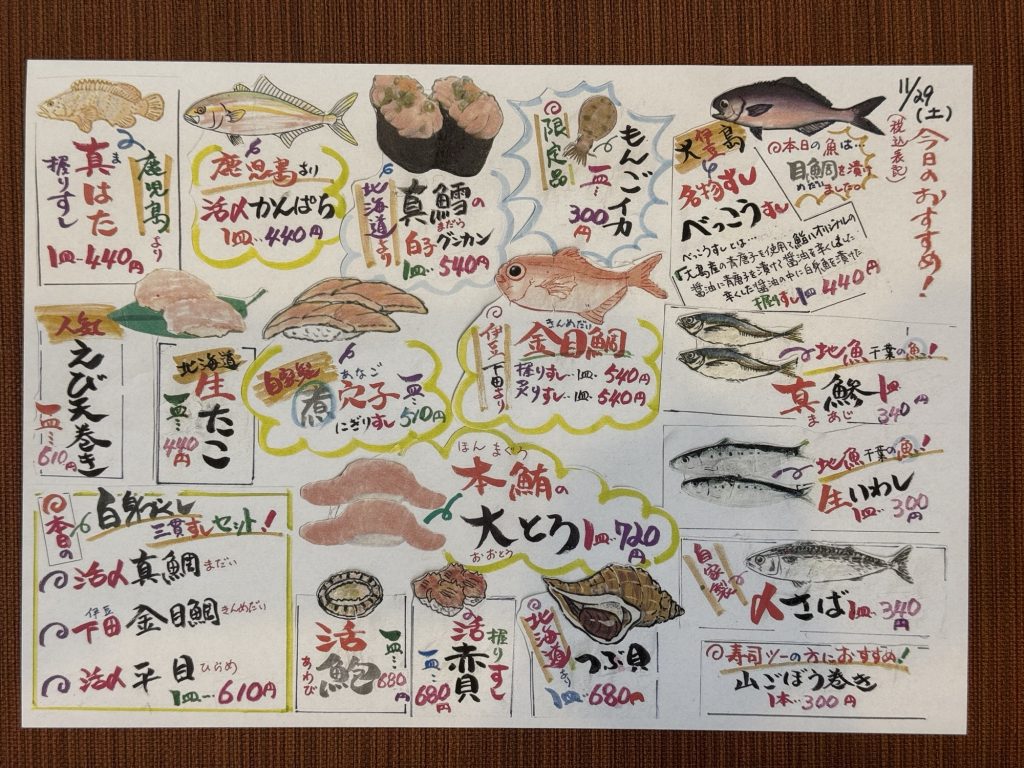 11/29(土)
(税込表記)
今日のおすすめ!
本日の魚は…
目鯛を漬け
めだい
ました。
大島
名物すし
べっこうすし
べっこうすしとは…
醤油に青唐子を漬けて醤油を辛くした
辛くした醤油の中に白身魚を漬けた
握りすし1皿 440円
限定品
もんごイカ
一皿…
300円
北海道より
真鱈の
まだら
白子グンカン
1皿… 540円
鹿児島より
活〆かんぱち
1皿… 440円
鹿児島より
真はた
ま
握りすし
1皿… 440円
人気
えび天巻き
一皿… 610円
北海道
生たこ
一皿… 440円
自家製
煮穴子
あなご
にぎりすし
一皿… 510円
伊豆下田より
金目鯛
きんめだい
握りすし…1皿… 540円
炙りすし…1皿… 540円
地魚 千葉の魚!
真鯵 1皿
まあじ
340円
地魚 千葉の魚!
生いわし
1皿… 300円
自家製
〆さば 1皿… 340円
寿司ツーの方におすすめ!
山ごぼう巻き
1本… 300円
本鮪の
ほんまぐろ
大とろ 1皿… 720円
おおとろ
本日の
白身づくし
三貫すしセット!
活〆 真鯛 まだい
伊豆
下田 金目鯛 きんめだい
活〆 平目 ひらめ
1皿… 610円
活鮑
あわび
一皿… 680円
活赤貝
握りすし
一皿… 680円
北海道より
つぶ貝
1皿… 680円